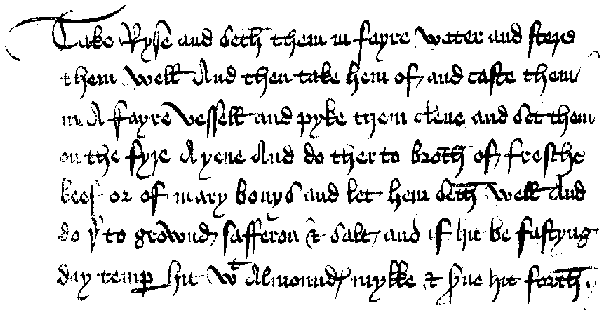 Take Ryse and seth them in fayre water and stere
them well And then take hem of and caste them
in A fayre vessell and pyke them clene and set them
on the fyre A yene And do ther to broth of fresche
beef or of mary bonys and let hem seth well And
do yͬ to grownd saffron & salt and if hit be fastyng
day temp hit wᵗ Almond mylke & sͬue hit forth.